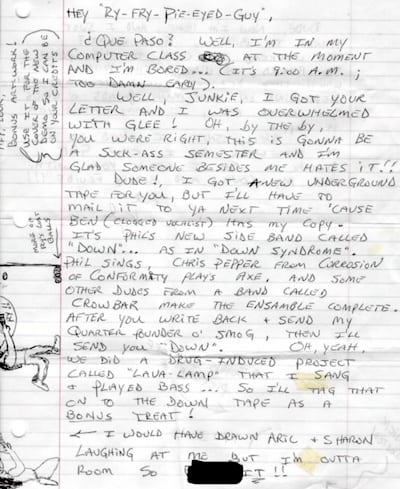 HEY "RY-FRY-PIE-EYED-GUY",
¿QUE PASO? WELL, I'M IN MY
COMPUTER CLASS AT THE MOMENT
AND I'M BORED... (IT'S 9:00 A.M.;
TOO DAMN EARLY).
WELL, JUNKIE, I GOT YOUR
LETTER AND I WAS OVERWHELMED
WITH GLEE! OH, by the by,
YOU WERE RIGHT, THIS IS GONNA BE
A SUCK-ASS SEMESTER AND I'M
GLAD SOMEONE BESIDES ME HATES IT!!
DUDE!, I GOT A NEW UNDERGROUND
TAPE FOR YOU, BUT I'LL HAVE TO
MAIL IT TO YA NEXT TIME 'CAUSE
BEN (CLOGGED VOCALIST) HAS MY COPY.
IT'S PHIL'S NEW SIDE BAND CALLED
"DOWN"... AS IN "DOWN SYNDROME".
PHIL SINGS, CHRIS PEPPER FROM CORROSION
OF CONFORMITY PLAYS AXE, AND SOME
OTHER DUDES FROM A BAND CALLED
CROWBAR MAKE THE ENSAMBLE COMPLETE.
AFTER YOU WRITE BACK & SEND MY
QUARTER POUNDER O' SMOG, THEN I'LL
SEND YOU "DOWN". OH, YEAH,
WE DID A DRUG-INDUCED PROJECT
CALLED "LAVA-LAMP" THAT I SANG
& PLAYED BASS... SO I'LL TAG THAT
ON TO THE DOWN TAPE AS A
BONUS TREAT!
← I WOULD HAVE DRAWN ARIC & SHARON
LAUGHING AT ME BUT I'M OUTTA
ROOM SO IT!!
HEY LOOK,
BONUS ARTWORK!
(USE IT FOR THE
COVER OF THE NEW
DEMO) SO I CAN BE
ON YOUR CREDITS
MORE OF
MY CAT
BALLS